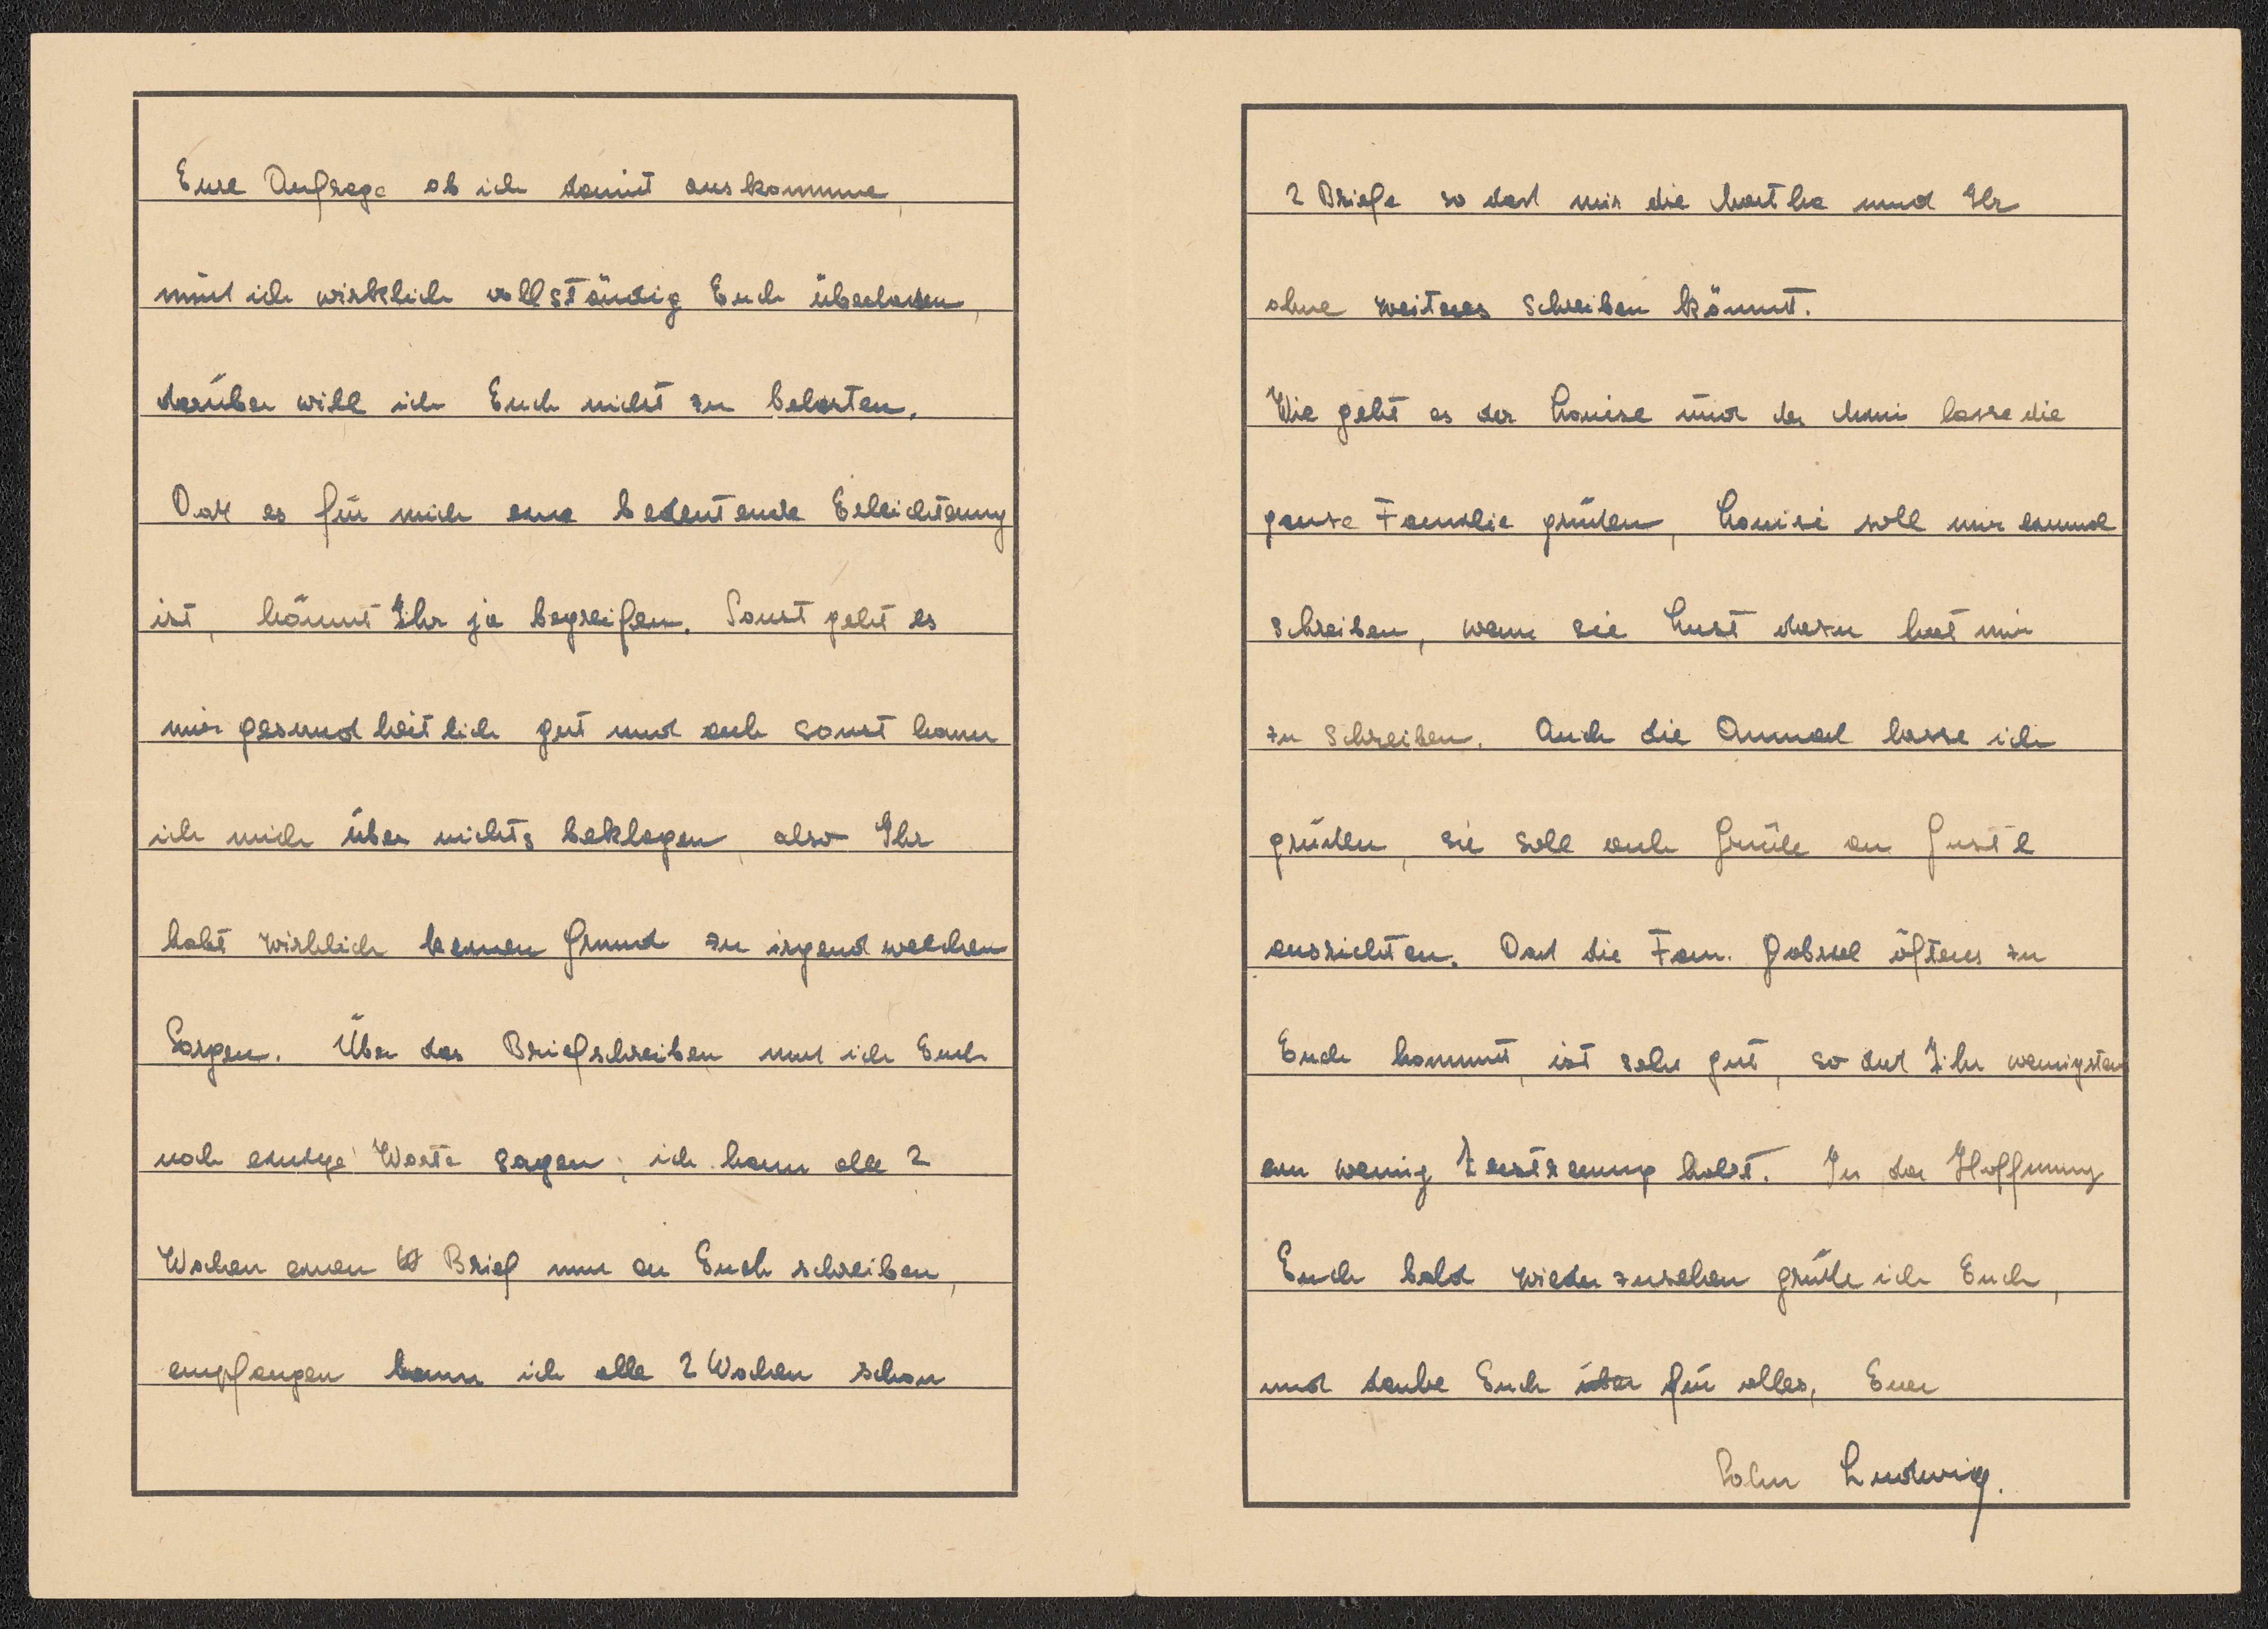 Eure Anfrage ob ich damit auskomme,
muß ich wirklich vollständig Euch überlassen,
darüber will ich Euch nicht zu belasten.
Daß es für mich eine bedeutende Erleichterung
ist, könnt Ihr ja begreifen. Sonst geht es
mir gesundheitlich gut und auch sonst kann
ich mich über nichts beklagen, also Ihr
habt wirklich keinen Grund zu irgend welchen
Sorgen. Über das Briefschreiben muß ich Euch
noch einige Worte sagen; ich kann alle 2
Wochen einen Brief nur an Euch schreiben,
empfangen kann ich alle 2 Wochen schon
2 Briefe so daß mir die Martha und Ihr
ohne weiteres schreiben könnt.
Wie geht es der Louise und der lasse die
ganze Familie grüßen, Louisi soll mir einmal
schreiben, wenn sie Lust dazu hat mir
zu schreiben. Auch die lasse ich
grüßen, sie soll auch Grüße an Gustl
ausrichten. Daß die Fam. Gabriel öfters zu
Euch kommt, ist sehr gut, so daß Ihr wenigstens
ein wenig Zerstreuung habt. In der Hoffnung
Euch bald wieder zusehen grüße ich Euch,
und danke Euch über für alles, Euer
Sohn Ludwig.